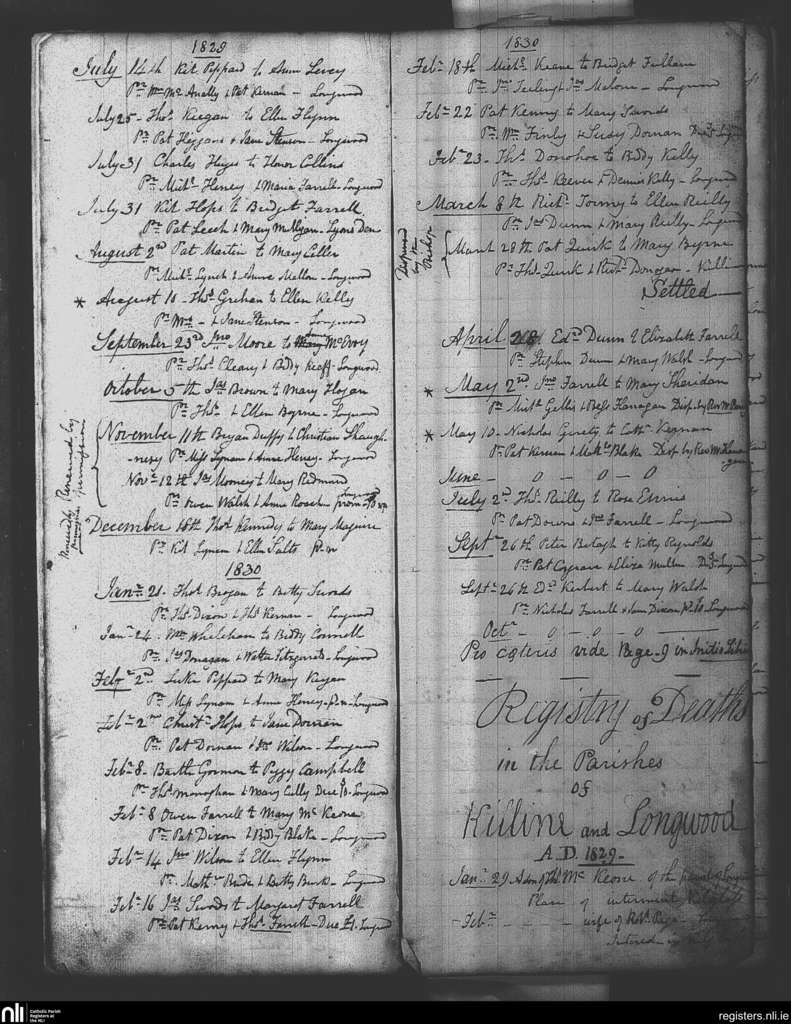 1829
July 14th Kit Peppard to Anne Levey
Prs Wm Mc Anally & Pat Kernan - Longwood
July 25 - Thos Keegan to Ellen Flynn
Prs Pat Higgans & Jane Stenson - Longwood
July 31 Charles Hayes to Honor Collins
Prs Michl Heney & Maria Farrell - Longwood
July 31 Kit Hops to Bridget Farrell
Prs Pat Leech & Mary Mulligan - Lyons Den
August 2nd Pat Martin to Mary Caller
Prs Michl Lynch & Anne Mallon - Longwood
* August 10 - Thos Grehan to Ellen Kelly
Prs Wm - & Jane Stenson - Longwood
September 23rd Jno Moore to Anne McEvoy
Prs Thos Cleary & Biddy Keeff - Longwood
October 5th Jas Brown to Mary Hogan
Prs Thos & Ellen Byrne - Longwood
November 11th Bryan Duffy to Christian Shaugh-
nessy Prs Miss Lynam & Anne Heney - Longwood
Novr 12th Jas Mooney to Mary Redmond
Prs Owen Walsh & Anne Roach
Renewed by permission
December 16th Thos Kennedy to Mary Maguire
Prs Kit Lynam & Ellen Salts
1830
Janry 21. Thos Brogan to Betty Swords
Prs Thos Dixon & Thos Kernan - Longwood
Janry 24. Wm Wheleham to Biddy Connell
Prs Jas Donagan & Walter Fitzgerald - Longwood
Feby 2nd Luke Peppard to Mary Keegan
Prs Miss Lynam & Anne Heney - Longwood
Feby 2nd Christr Hops to Jane Dornan
Prs Pat Dornan & Wilson - Longwood
Feby 8 - Barth Gorman to Peggy Campbell
Prs Thos Monaghan & Mary Cully Due - Longwood
Feby 8 Owen Farrell to Mary Mc Keone
Prs Pat Dixon & Biddy Blake - Longwood
Feby 14 Jno Wilson to Ellen Flynn
Prs Mathw & Betty Burk - Longwood
Feby 16 Jas Swords to Margaret Farrell
Prs Pat Kenny & Thos Farrell - Due £1. Longwood
1830
Feby 18th Michl Keane to Bridget Fullam
Prs Jas Teeling & Jas Malone - Longwood
Feby 22 Pat Kenny to Mary Swords
Prs Wm Finly & Dornan
Feby 23 - Thos Donohoe to Biddy Kelly
Prs Thos Keever & Dennis Kelly - Longwood
March 8th Richd Tormy to Ellen Reilly
Prs Jas Dunn & Mary Reilly - Longwood
Dispensed by the Bishop
March 28th Pat Quirk to Mary Byrne
Prs Thos Quirk & Richd Donogan -
Settled
April 28. Edd Dunn & Elizabeth Farrell
Prs Stephen Dunn & Mary Walsh - Longwood
* May 2nd. Jno Farrell to Mary Sheridan
Prs Michl & Bess Flanagan Disp. by Rev
* May 10 - Nicholas Gerety to Cathe Kernan
Prs Pat Kernan & Blake Disp by Rev
June - 0 - 0 - 0
July 2nd. Thos Reilly to Rose Ennis
Prs Pat Downs & Jas Farrell - Longwood
Septr 26th Peter Betagh to Kitty Reynolds
Prs Pat & Eliza Mullen
Septr 26th Edd to Mary Walsh
Prs Nicholas Farrell & Anne Dixon - Longwood
Octr - 0 - 0 - 0
Pro cæteris vide Page - 9 in Initio Libri
Registry of Deaths
in the Parishes
of
Killine and Longwood
A.D. 1829 -
Janry 29 A son of Thos Mc Keone of the parish of Longwood
Place of interment
- Feby - - - wife of Robt
Interred in
nli
Catholic Parish
Registers at
the NLI
registers.nli.ie